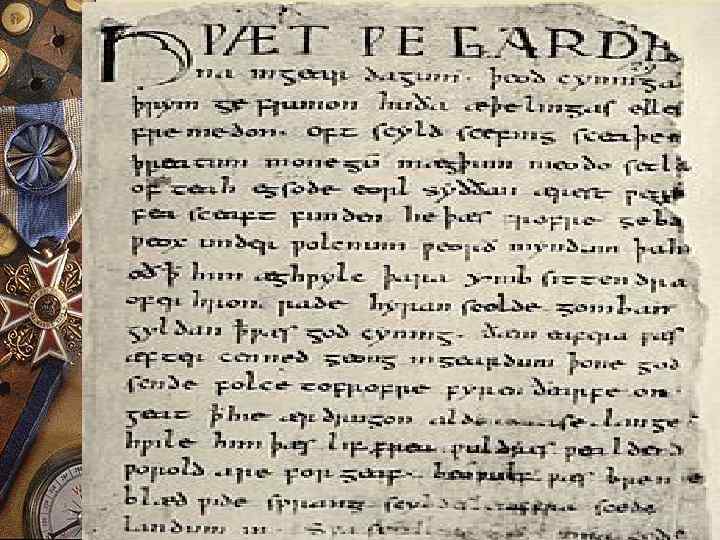 HǷÆT ǷE GARDE
na ingear dagum. þeod cyninga
þrym ge frunon huða æþelingas elle
fre medon. oft scyld scefing sceaþe
þreatum monegū mægþum meodo setla
of teah egsode eorl syððan ærest ƿear
fea sceaft funden he þæs frofre geba
ƿeox under ƿolcnum ƿeorð myndum þah
oð ꝥ him æghƿylc þara ymb sittendra
ofer hron rade hyran scolde gomban
gyldan ꝥ ƿæs god cyning. ðæm eafera ƿæs
æfter cenned geong in geardum þone god
sende folce tofrofre fyren ðearfe on
geat ꝥ hie ær drugon aldor ase. lange
hƿile him þæs lif frea ƿuldres ƿealdend
ƿorold are for geaf. beoƿulf ƿæs breme
blæd ƿide sprang scyldes eafera scede
landum in.